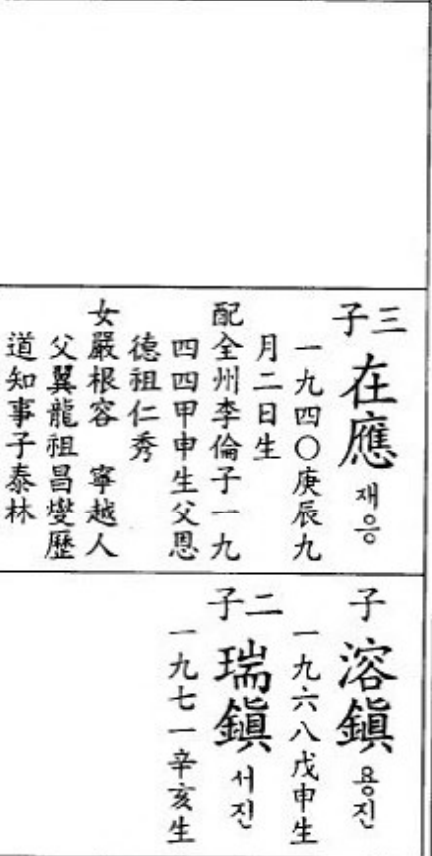 三子 在應 재응
一九四〇庚辰九
月二日生
配全州李倫子一九
四四甲申生父恩
德祖仁秀
女嚴根容 寧越人
父翼龍祖昌燮歷
道知事子泰林
子 溶鎭 용진
一九六八戊申生
二子 瑞鎭 서진
一九七一辛亥生